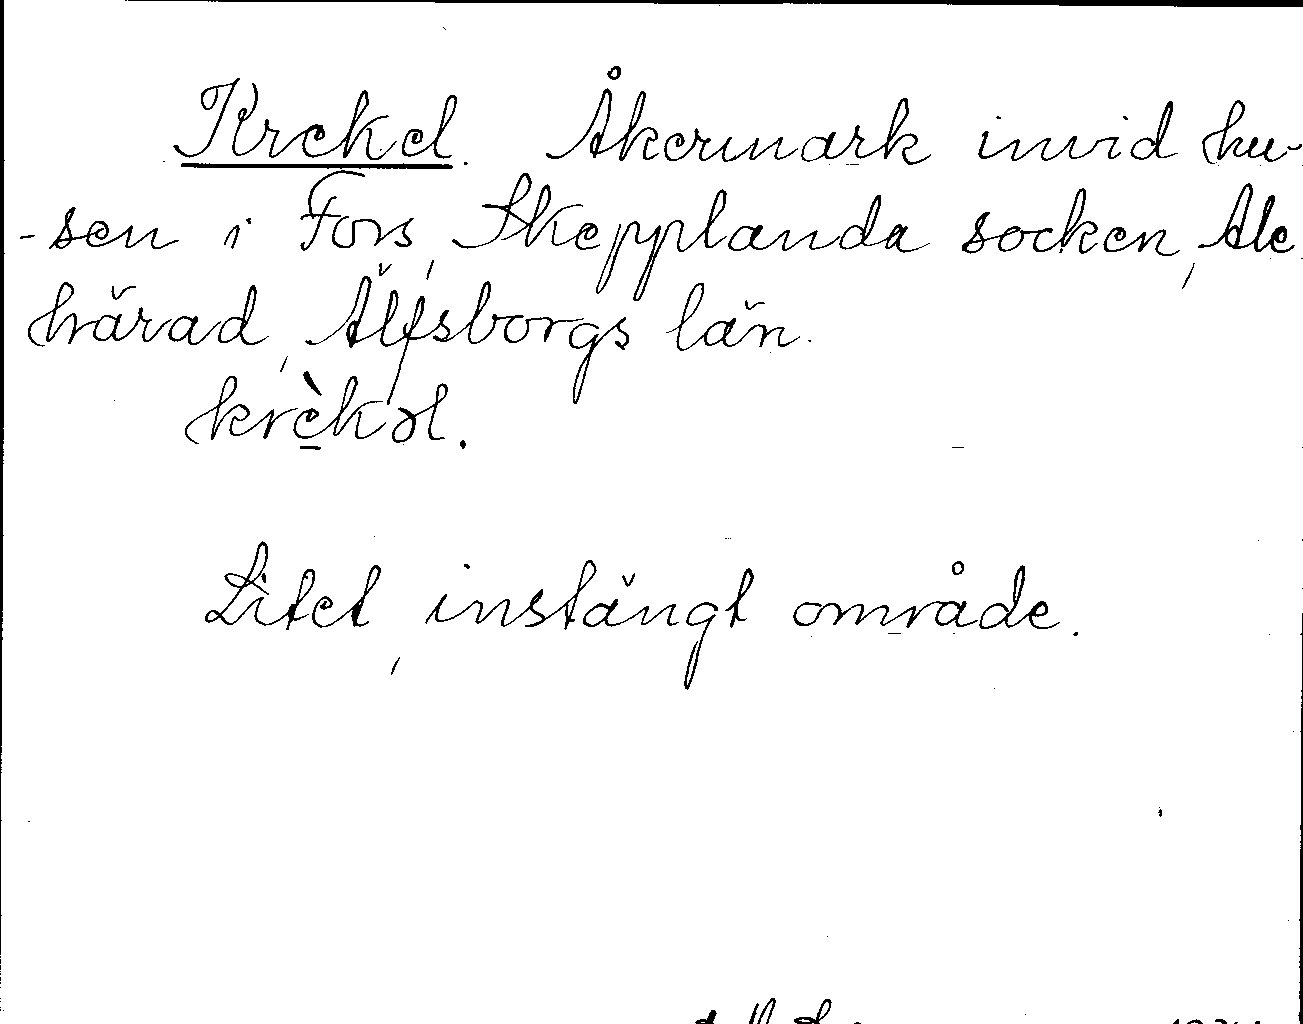 Krekel. Åkermark invid hu-
-sen i Fors, Skepplanda socken, Ale
härad, Älfsborgs län.
krèkəl.
Litet, instängt område.